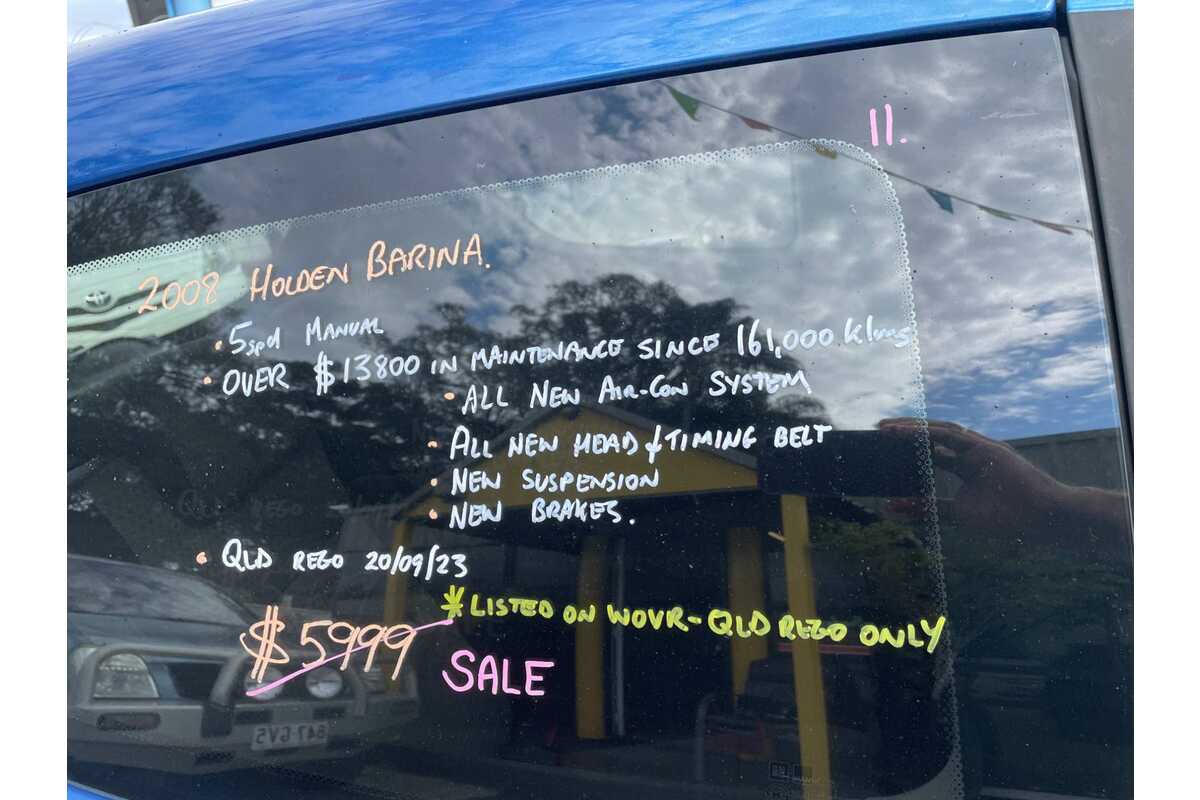 11.
2008 HOLDEN BARINA.
• 5spd MANUAL
• OVER $13800 IN MAINTENANCE SINCE 161,000 klms
• ALL NEW AIR-CON SYSTEM
• ALL NEW HEAD & TIMING BELT
• NEW SUSPENSION
• NEW BRAKES.
• QLD REGO 20/09/23
* LISTED ON WOVR-QLD REGO ONLY
$5999
SALE